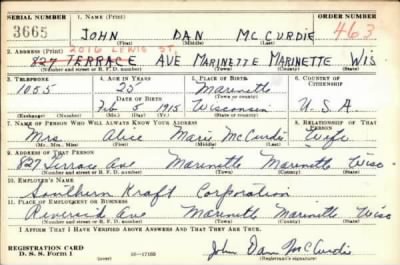 SERIAL NUMBER 1. NAME (Print) ORDER NUMBER
3665 JOHN DAN MCCURDIE 463
(First) (Middle) (Last)
2016 LEWIS ST.
2. ADDRESS (Print)
827 TERRACE AVE MARINETTE MARINETTE WIS
(Number and street or R. F. D. number) (Town) (County) (State)
3. TELEPHONE 4. AGE IN YEARS 5. PLACE OF BIRTH 6. COUNTRY OF CITIZENSHIP
1055 25 Marinette
DATE OF BIRTH (Town or county)
Feb 5 1915 Wisconsin U.S.A.
(Exchange) (Number) (Mo.) (Day) (Yr.) (State or country)
7. NAME OF PERSON WHO WILL ALWAYS KNOW YOUR ADDRESS 8. RELATIONSHIP OF THAT PERSON
Mrs Alice Marie McCurdie Wife
(Mr., Mrs., Miss) (First) (Middle) (Last)
9. ADDRESS OF THAT PERSON
827 Terrace Ave Marinette Marinette Wisc
(Number and street or R. F. D. number) (Town) (County) (State)
10. EMPLOYER'S NAME
Southern Kraft Corporation
11. PLACE OF EMPLOYMENT OR BUSINESS
Riverside Ave Marinette Marinette Wisc
(Number and street or R. F. D. number) (Town) (County) (State)
I AFFIRM THAT I HAVE VERIFIED ABOVE ANSWERS AND THAT THEY ARE TRUE.
REGISTRATION CARD John Dan McCurdie
D. S. S. Form 1 (over) 16-17105 (Registrant's signature)